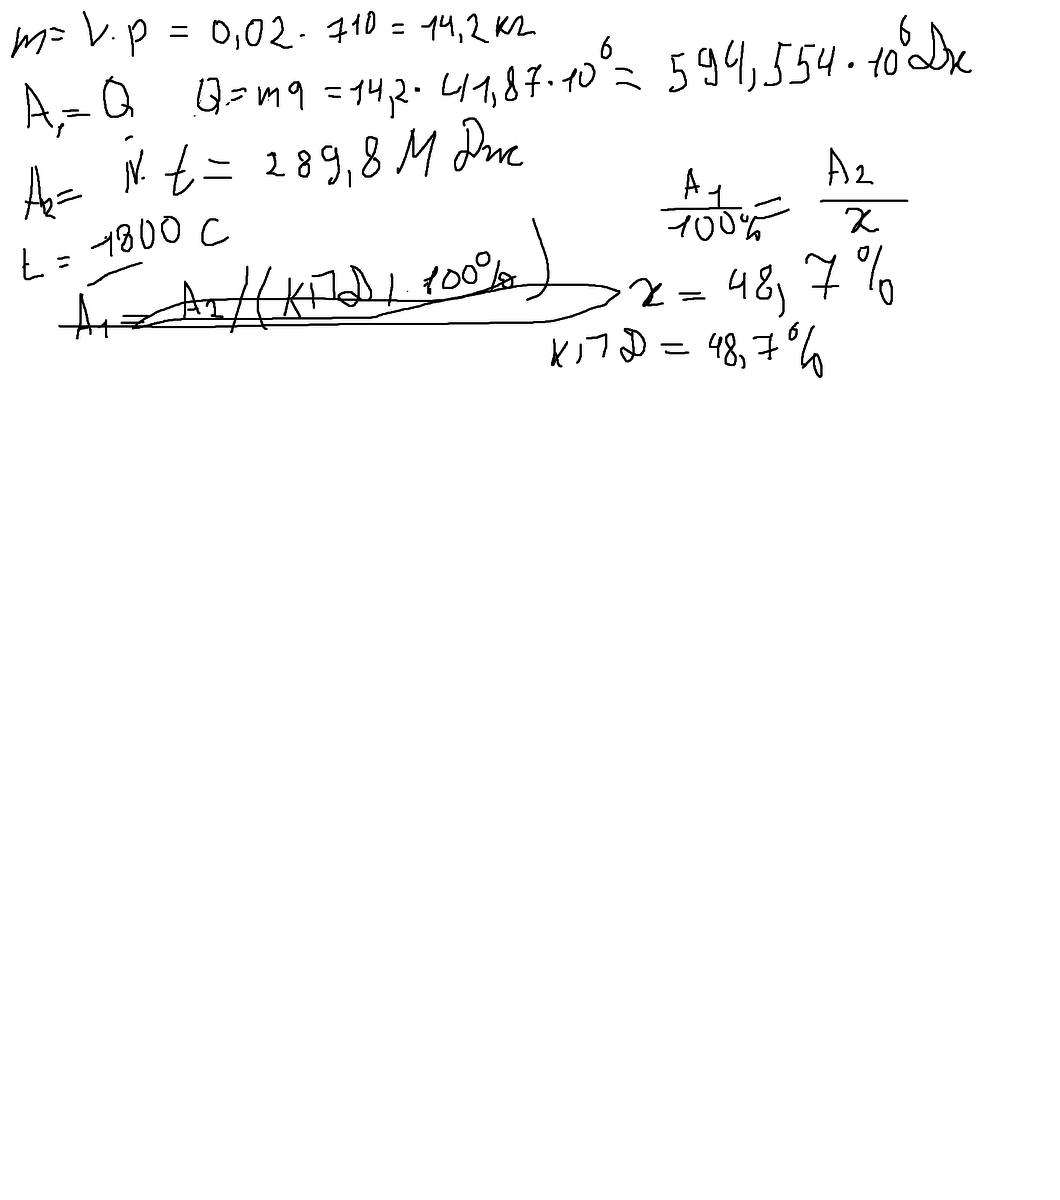 m = V · p = 0,02 · 710 = 14,2 кг
A₁ = Q Q = mq = 14,2 · 41,87 · 10⁶ = 594,554 · 10⁶ Дж
A₂ = N · t = 289,8 М Дж
t = 1800 С
A₁ = A₂ / (КПД · 100%)
A₁/100% = A₂/x
x = 48,7%
КПД = 48,7%